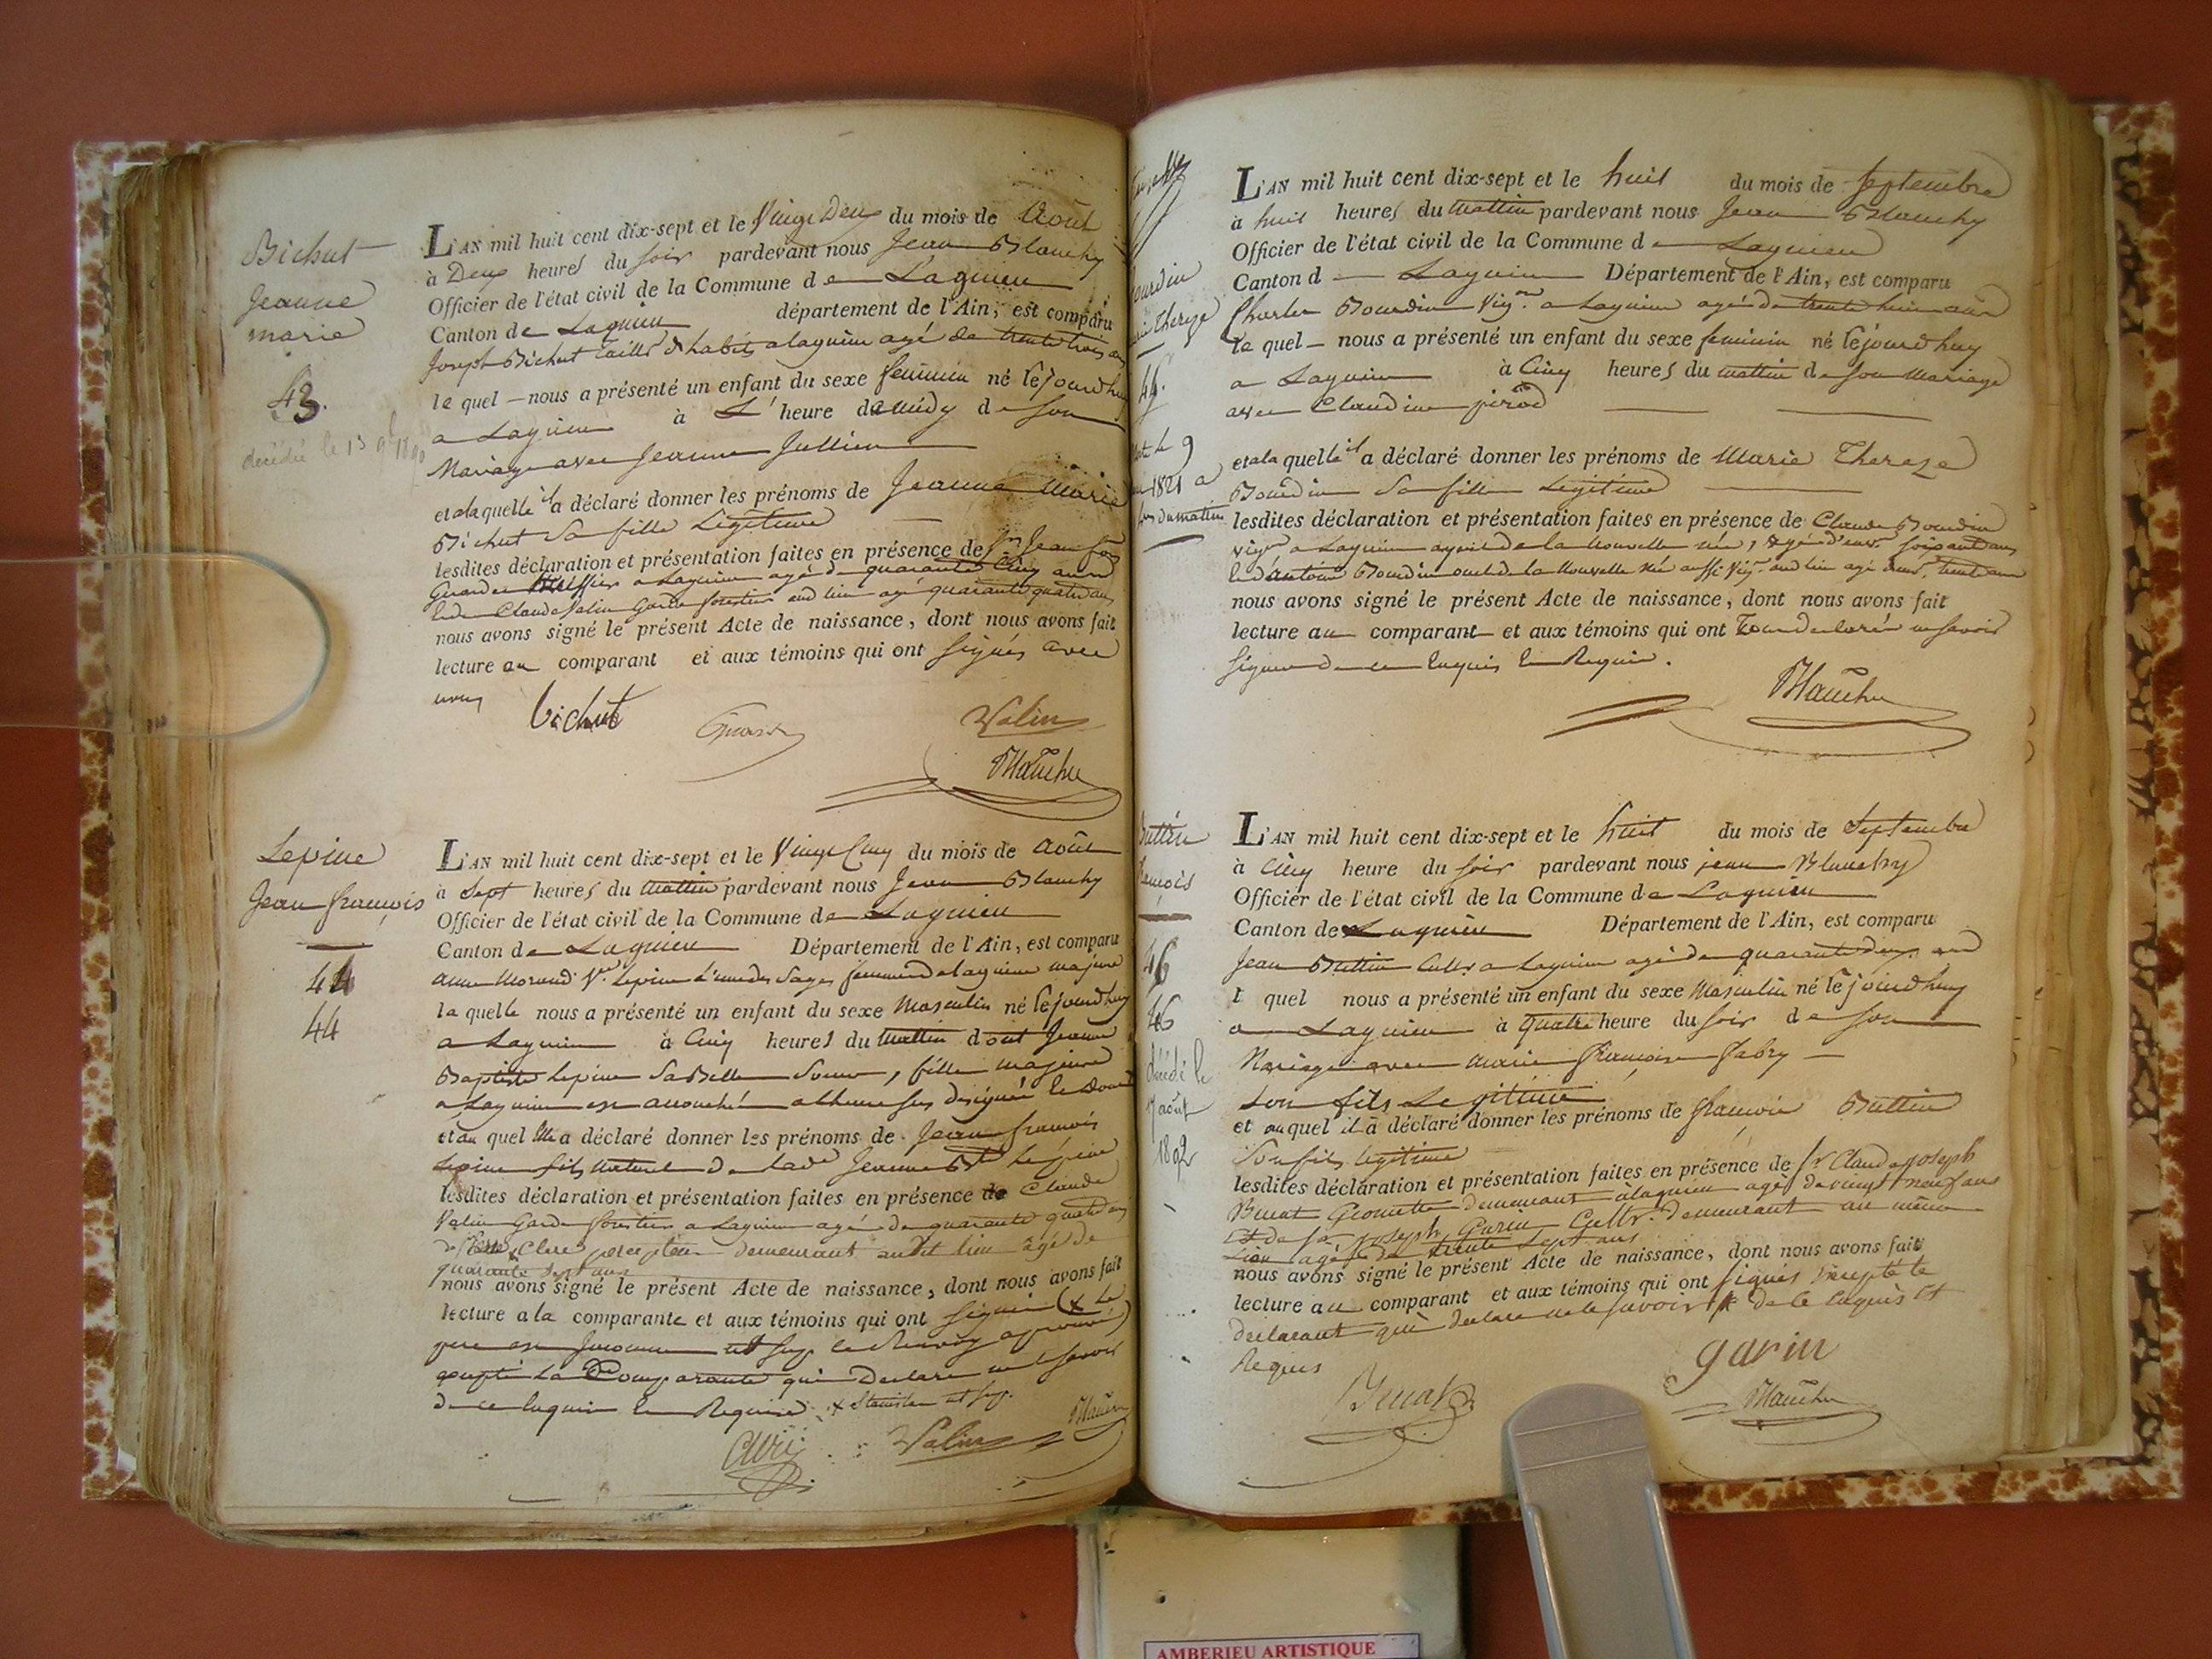 Bichut
Jeanne
marie
43.
décédée le 13
L'AN mil huit cent dix-sept et le Vingt Deux du mois de Août
à Deux heures du soir pardevant nous Jean Blanchy
Officier de l'état civil de la Commune de Lagnieu
Canton de Lagnieu département de l'Ain, est comparu
Joseph Bichut tailler d'habits a lagnieu agé de trente trois ans
le quel nous a présenté un enfant du sexe feminin né le jourd'huy
a Lagnieu à L'heure de midy de son
Mariage avec Jeanne Jullien
et a la quelle il a déclaré donner les prénoms de Jeanne Marie
Bichut Sa fille Légitime
lesdites déclaration et présentation faites en présence de Sr Jean fois
Girard huissier a Lagnieu agé de quarante Cinq ans
Claude Valin Garde forestier aud lieu agé quarante quatre ans
nous avons signé le présent Acte de naissance, dont nous avons fait
lecture au comparant et aux témoins qui ont signés avec
nous
bichut
Valin
Blanchy
Lepine
Jean françois
44
44
L'AN mil huit cent dix-sept et le Vingt Cinq du mois de Août
à Sept heures du mattin pardevant nous Jean Blanchy
Officier de l'état civil de la Commune de Lagnieu
Canton de Lagnieu Département de l'Ain, est comparu
anne Morand Ve Lepine l'une des Sages femmes de lagnieu majeure
la quelle nous a présenté un enfant du sexe Masculin né le jourd'huy
a Lagnieu à Cinq heures du mattin dont Jeanne
Baptiste Lepine Sa Belle Soeur, fille majeure
a Lagnieu est accouchée a l'heure sus designée
et au quel Elle a déclaré donner les prénoms de Jean françois
Lepine fils naturel de lade Jeanne Bte Lepine
lesdites déclaration et présentation faites en présence de Claude
Valin Garde forestier a Lagnieu agé de quarante quatre ans
Clerc percepteur demeurant audit lieu âgé de
quarante sept ans
nous avons signé le présent Acte de naissance, dont nous avons fait
lecture a la comparante et aux témoins qui ont signés (x Le
pere est Inconnu le Renvoy approuvé)
excepté La Comparante qui a Declaré ne le savoir
de ce Enquise Et Requise
Valin
Blanchy
Bourdin
Marie Thereze
9
1821 a
du mattin
L'AN mil huit cent dix-sept et le huit du mois de Septembre
à huit heures du mattin pardevant nous Jean Blanchy
Officier de l'état civil de la Commune de Lagnieu
Canton d Lagnieu Département de l'Ain, est comparu
Charles Bourdin Vigon a Lagnieu agé de trente huit ans
le quel nous a présenté un enfant du sexe feminin né le jourd'huy
a Lagnieu à Cinq heures du mattin de son Mariage
avec Claudine pirod
et a la quelle il a déclaré donner les prénoms de Marie Thereze
Bourdin Sa fille Légitime
lesdites déclaration et présentation faites en présence de Claude Bourdin
vigon a Lagnieu ayeul de la Nouvelle née, agé d'envon soixante ans
Et d'antoine Bourdin oncle de la Nouvelle née aussi Vigon aud lieu agé d'envon trente ans
nous avons signé le présent Acte de naissance, dont nous avons fait
lecture au comparant et aux témoins qui ont Tous declarés ne savoir
Signer de ce Enquis Et Requis.
Blanchy
Buttin
françois
46
46
décédé le
17 août
1892
L'AN mil huit cent dix-sept et le huit du mois de Septembre
à Cinq heure du soir pardevant nous jean Blanchy
Officier de l'état civil de la Commune de Lagnieu
Canton de Lagnieu Département de l'Ain, est comparu
Jean Buttin Cultr a Lagnieu agé de quarante deux ans
l quel nous a présenté un enfant du sexe Masculin né le jourd'huy
a Lagnieu à quatre heure du soir de son
Mariage avec Marie françoise fabry
son fils Légitime
et au quel il a déclaré donner les prénoms de françois Buttin
Son fils légitime
lesdites déclaration et présentation faites en présence de Sr Claude joseph
Geometre demeurant à lagnieu agé de vingt neuf ans
Et de Sr joseph Garin Cultr. demeurant au même
Lieu agé de trente sept ans
nous avons signé le présent Acte de naissance, dont nous avons fait
lecture au comparant et aux témoins qui ont signés excepté le
declarant qui a declaré ne le savoir de ce Enquis Et
Requis
garin
Blanchy
AMBERIEU ARTISTIQUE